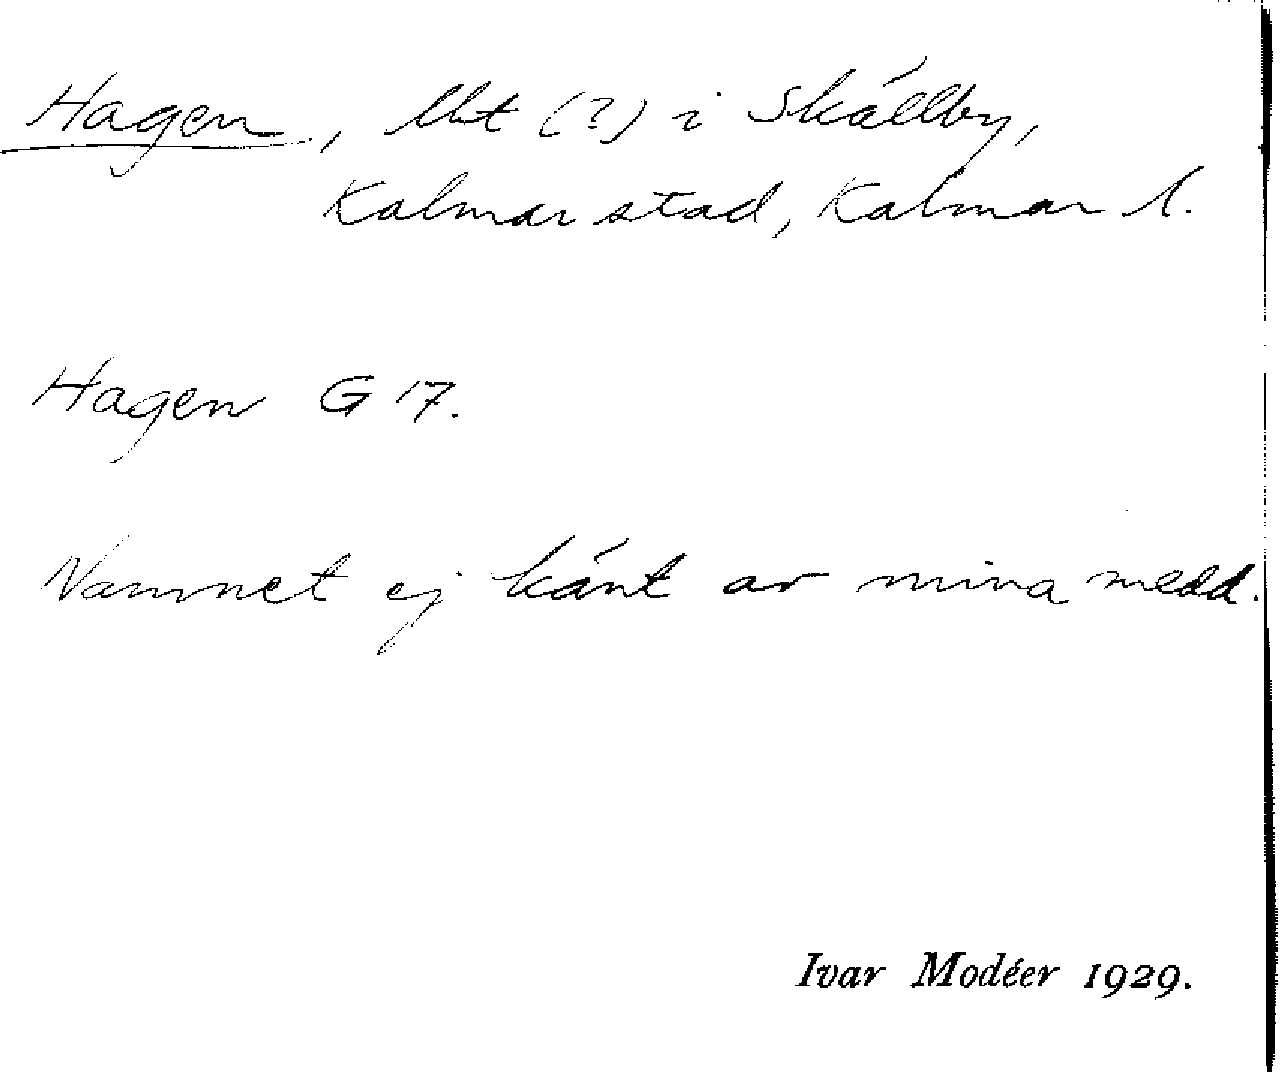 Hagen, lht (?) i Skällby,
Kalmar stad, Kalmar l.
Hagen G 17.
Namnet ej känt av mina medd.
Ivar Modéer 1929.